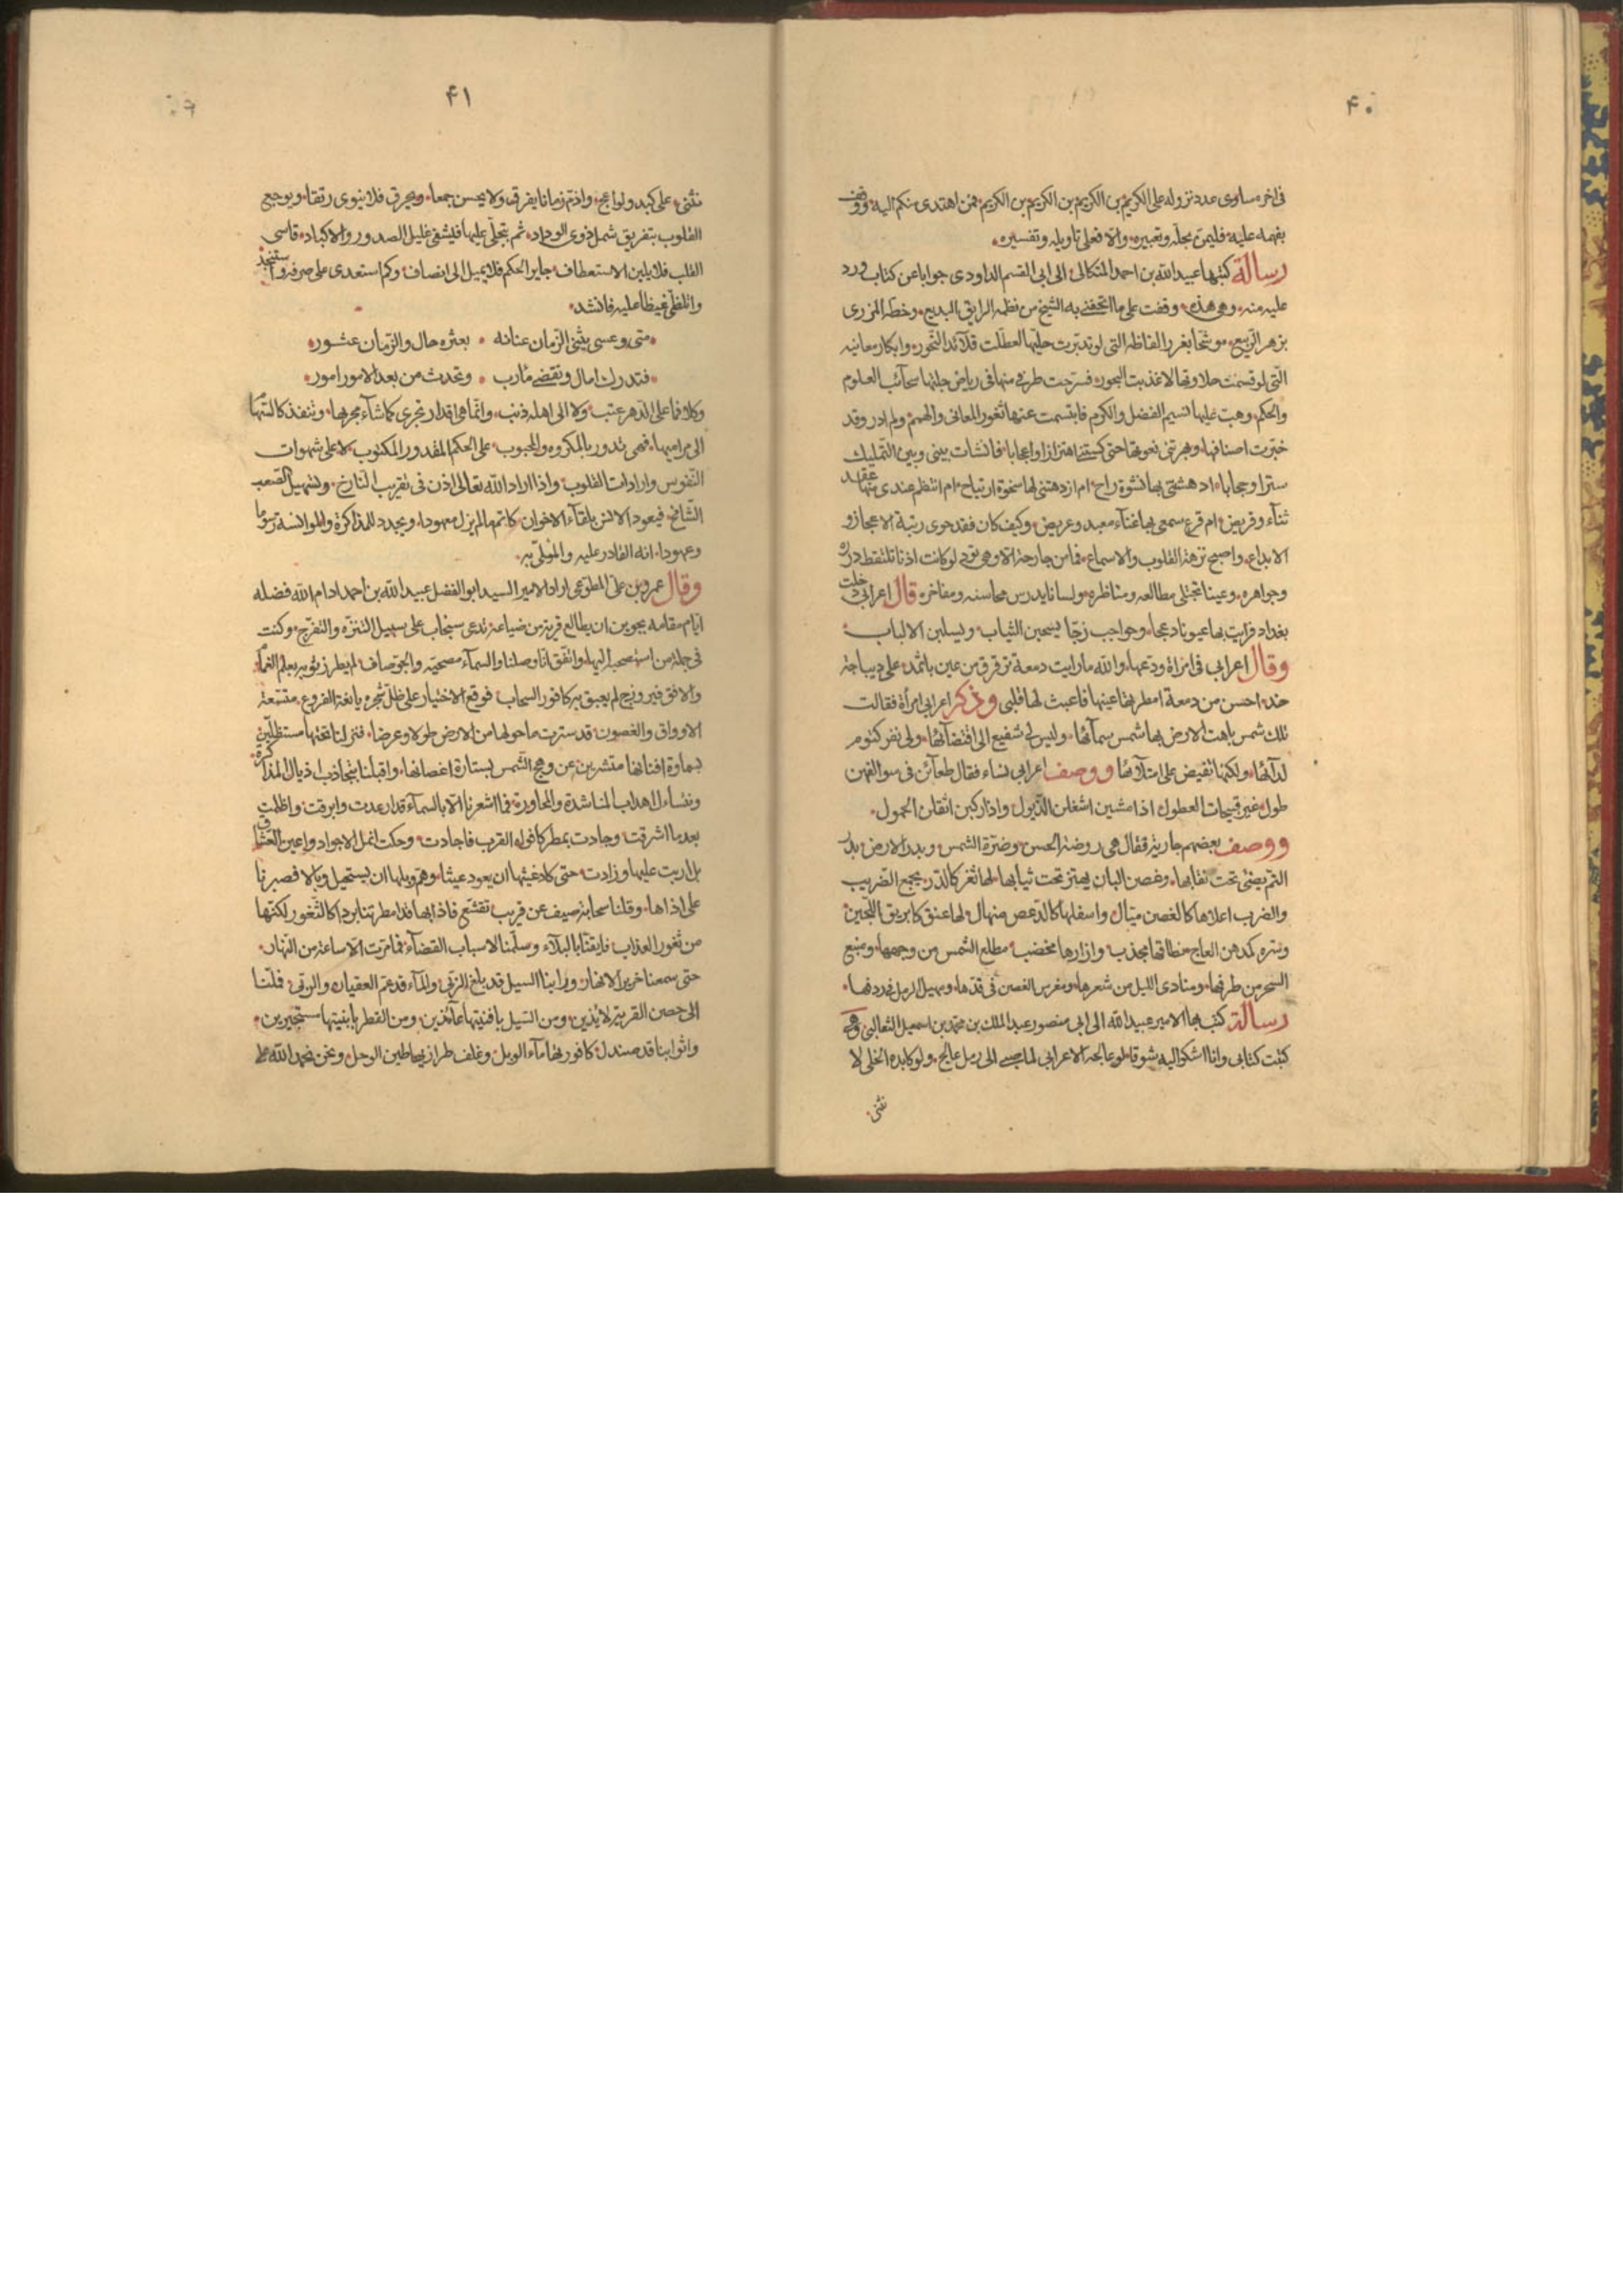 ۴۰
فى اخره مساوى عدد نزوله على الكريم بن الكريم بن الكريم بن الكريم فمن اهتدى منكم اليه ووقف
بفهمه عليه فليمن بحله وتعبيره والا فعلى تاويله وتفسيره
رسالة كتبها عبيد الله بن احمد الميكالى الى ابى القسم الداودى جوابا عن كتاب ورد
عليه منه وهى هذه وقفت على ما اتحفنى به الشيخ من نظمه الرايق البديع وخطه المزرى
بزهر الربيع موشحا بغرر الفاظه التى لو تدبرت حليها لعطلت قلائد النحور وابكار معانيه
التى لو قسمت حلاوتها لاعذبت البحور فسرحت طرفى منها فى رياض جلتها سحائب العلوم
والحكم وهبت عليها نسيم الفضل والكرم فابتسمت عنها ثغور المعانى والهمم ولم ادر وقد
خبرت اصنافها وبهرتنى نعوتها حتى كستنى اهتزازا واعجابا فانشات بينى وبين التمليك
سترا وحجابا اد هشتنى بها نشوة راح ام ازدهتنى لها نخوة ارتياح ام انتظم عندى منها عقد
ثناء وقريض ام قرع سمعى بها غناء معبد وعريض وكيف كان فقد حوى رتبة الاعجاز و
الابداع واصبح نزهة القلوب والاسماع فما من جارحة الا وهى تود لو كانت اذنا تلتقط درره
وجواهره وعينا تجتلى مطالعه ومناظره ولسانا يدرس محاسنه ومفاخره قال اعرابى دخلت
بغداد فرايت بها عيونا دعجا وحواجب زجا يسحبن الثياب ويسلبن الالباب
وقال اعرابى فى امراة ودعها والله ما رايت دمعة ترقرق من عين باثمد على ديباجة
خد احسن من دمعة امطرتها عينها فاعبث لها قلبى وذكر اعرابى امرأة فقالت
تلك شمس باهت الارض بها شمس سمائها وليس لى شفيع الى اقتضائها ولى نفر كتوم
لدائها ولكنها تفيض على امتلائها ووصف اعرابى نساء فقال ظعائن فى سوالفهن
طول غير قبيحات العطول اذا مشين اشغلن الذيول واذا ركبن اثقلن الحمول
ووصف بعضهم جارية فقال هى روضة الحسن وضرة الشمس وبدر الارض بدر
التم يضئ تحت نقابها وغصن البان يهتز تحت ثيابها لها ثغر كالدر يجمع الضريب
والضرب اعلاها كالغصن ميال واسفلها كالدعص منهال لها عنق كابريق اللجين
وسرة كمدهن العاج نطاقها مجذب وازارها مخضب مطلع الشمس من وجهها ومنبع
السحر من طرفها ومنادى الليل من شعرها ومغرس الغصن فى قدها ومهيل الرمل فى ردفها
رسالة كتب بها الامير عبيد الله الى ابى منصور عبد الملك بن محمد بن اسمعيل الثعالبى وهى
كتبت كتابى وانا اشكو اليه شوقا لو عالجه الاعرابى لما صبى الى رمل عالج ولو كابده الخلى لا
نثنى
۴۱
نثنى على كبد ولواعج واذم زمانا يفرق ولا يحسن جمعا ويخرق فلا ينوى رتقا ويوجع
القلوب بتفريق شمل ذوى الوداد ثم يتجلى عليها فليشفى غليل الصدور والاكباد قاسى
القلب فلا يلين الاستعطاف جاير الحكم فلا يميل الى انصاف وكم استعدى على صرفه واستنجد
واتلظى غيظا عليه فانشد
متى وعسى يثنى الزمان عنانه بعثره حال والزمان عثور
فتدرك امال وتقضى مأرب وتحدث من بعد الامور امور
وكلا فما على الدهر عتب ولا الى اهله ذنب وانما هى اقدار تجرى كما شاء مجريها وتنفذ كالسهام
الى مراميها فهى تدور بالمكروه والمحبوب على الحكم المقدور المكتوب لا على شهوات
النفوس وارادات القلوب واذا اراد الله تعالى اذن فى تقريب النازح وتسهيل الصعب
الشامخ فيعود الانس بلقاء الاخوان كاتمها لم يزل معهودا ويجدد للمذاكرة والموانسة رسوما
وعهودا انه القادر عليه والملى به
وقال عمرو بن على المطوعى اراد الامير السيد ابو الفضل عبيد الله بن احمد ادام الله فضله
ايام مقامه بجوين ان يطالع قرية من ضياعه تدعى سنجاب على سبيل التنزه والتفرج وكنت
فى جملة من استصحبه اليها واتفق انا وصلنا والسماء مصحية والجو صاف لم يطرز ثوبه بعلم الغمام
والافق فيروزج لم يعبق به كافور السحاب فوقع الاختيار على ظل شجره يانعة الفروع متسعة
الاوراق والغصون قد سترت ما حولها من الارض طولا وعرضا فنزلنا تحتها مستظلين
بسماوة افنانها متسترين عن وهج الشمس بستارة اغصانها واقبلنا نتجاذب اذيال المذاكرة
ونتساءل اهداب المناشدة والمحاورة فما اشعرنا الا بالسماء قد ارعدت وابرقت واظلمت
بعد ما اشرقت وجادت بمطر كافواه القرب فاجادت وحكت انمل الاجواد واعين العشاق
بل اربت عليها وزادت حتى كاد غيثها ان يعود عيثا وهم وبلها ان يستحيل وبالا فصبرنا
على اذاها وقلنا سحابة صيف عن قريب تقشع فاذا بها قد امطرتنا بردا كالثغور لكنها
من ثغور العذاب فايقنا بالبلاء وسلمنا لاسباب القضاء فما مرت الا ساعة من النهار
حتى سمعنا خرير الانهار وراينا السيل قد بلغ الزبى والماء قد عم القيعان والربى فلتنا
الى حصن القرية لائذين ومن السيل بافنيتها عائذين ومن القطر بابنيتها مستجيرين
واثوابنا قد صندل كافوريها ماء الوبل وغلف طرازيها طين الوحل ونحن نحمد الله على